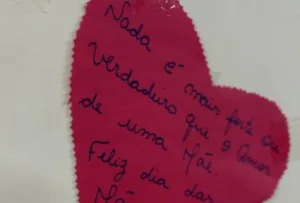 Nada é mais forte ou
verdadeiro que o Amor
de uma Mãe.
Feliz dia das
Mã